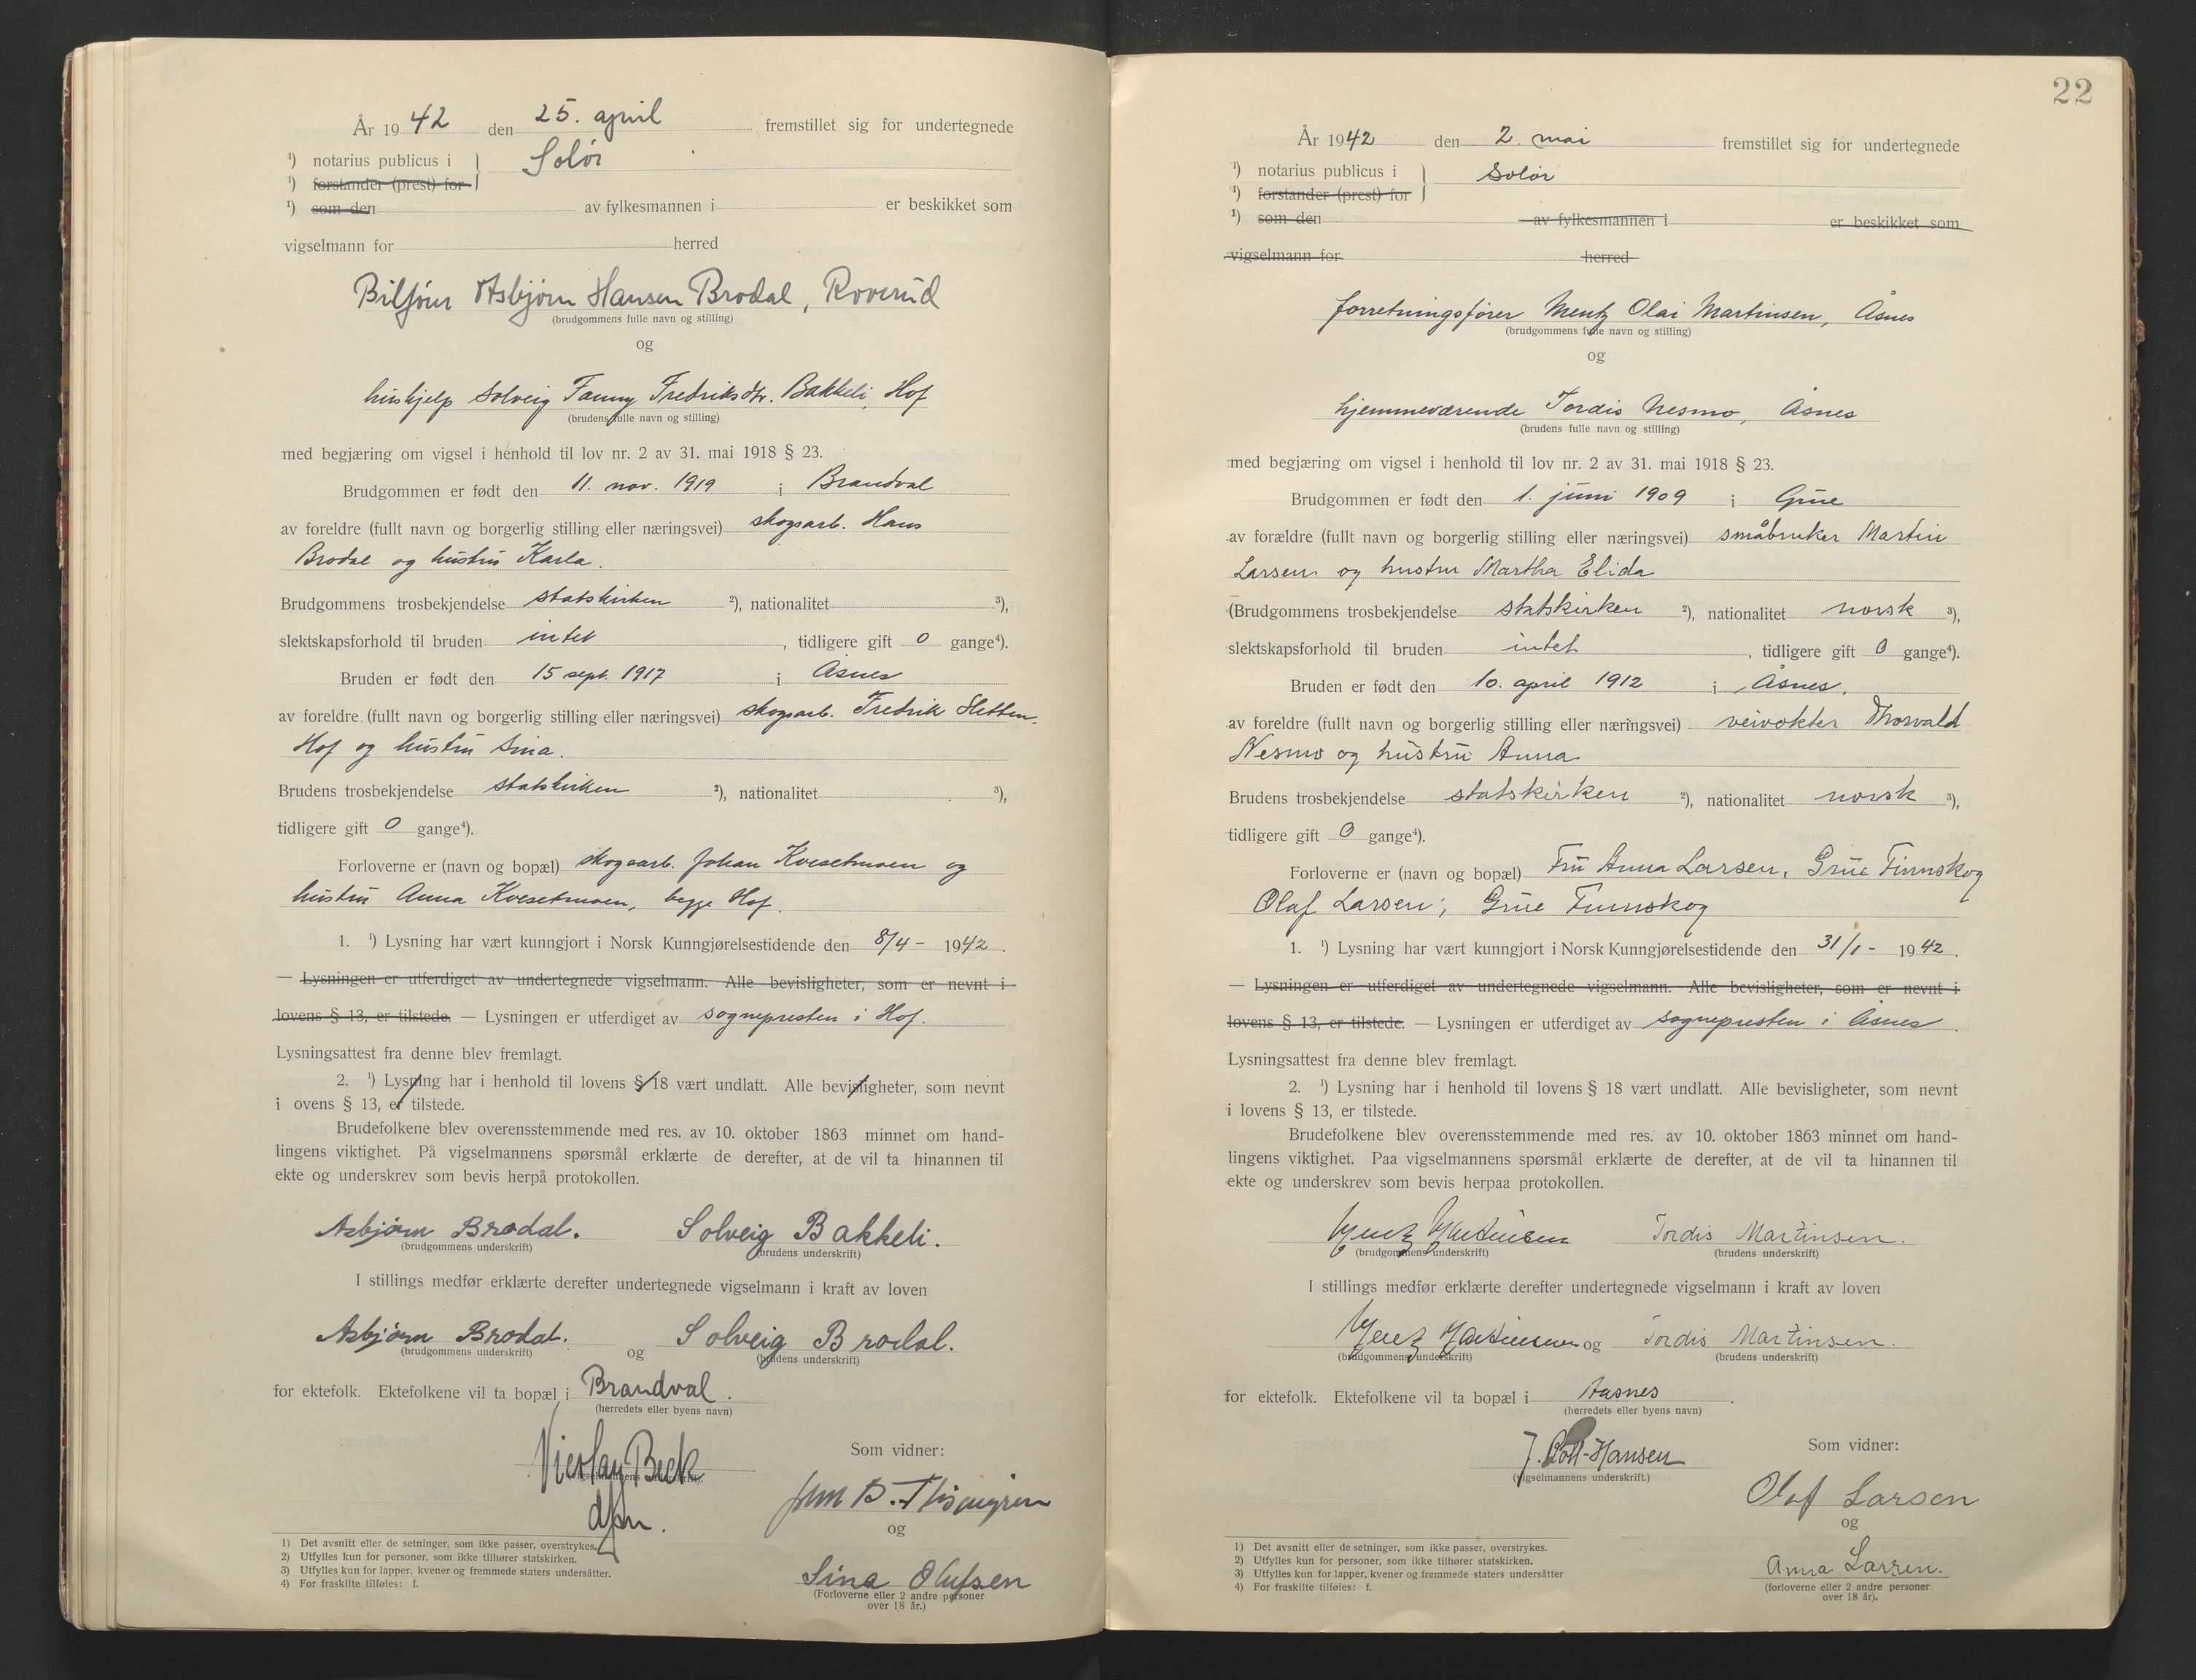 År 1942 den 25. april fremstillet sig for undertegnede
¹) notarius publicus i } Solør
¹) forstander (prest) for
¹) som den av fylkesmannen i er beskikket som
vigselmann for herred
Asbjørn Hansen Brodal, Roverud
(brudgommens fulle navn og stilling)
og
hushjelp Solveig Fanny Fredriksdtr. Bakkeli, Hof
(brudens fulle navn og stilling)
med begjæring om vigsel i henhold til lov nr. 2 av 31. mai 1918 § 23.
Brudgommen er født den 11. nov. 1919 i Brandval
av foreldre (fullt navn og borgerlig stilling eller næringsvei) skogsarb. Hans
Brodal og hustru Karla.
Brudgommens trosbekjendelse statskirken ²), nationalitet ³),
slektskapsforhold til bruden intet , tidligere gift 0 gange⁴).
Bruden er født den 15 sept. 1917 i Åsnes
av foreldre (fullt navn og borgerlig stilling eller næringsvei) skogsarb. Fredrik
Hof og hustru Sina.
Brudens trosbekjendelse statskirken ²), nationalitet ³),
tidligere gift 0 gange⁴).
Forloverne er (navn og bopæl) skogsarb. Johan Kvesetmoen og
hustru Anna Kvesetmoen, begge Hof.
1. ¹) Lysning har vært kunngjort i Norsk Kunngjørelsestidende den 8/4 - 1942.
— Lysningen er utferdiget av undertegnede vigselmann. Alle bevisligheter, som er nevnt i
lovens § 13, er tilstede. — Lysningen er utferdiget av sognepresten i Hof.
Lysningsattest fra denne blev fremlagt.
2. ¹) Lysning har i henhold til lovens § 18 vært undlatt. Alle bevisligheter, som nevnt
i ovens § 13, er tilstede.
Brudefolkene blev overensstemmende med res. av 10. oktober 1863 minnet om hand-
lingens viktighet. På vigselmannens spørsmål erklærte de derefter, at de vil ta hinannen til
ekte og underskrev som bevis herpå protokollen.
Asbjørn Brodal. Solveig Bakkeli.
(brudgommens underskrift) (brudens underskrift)
I stillings medfør erklærte derefter undertegnede vigselmann i kraft av loven
Asbjørn Brodal. og Solveig Brodal.
(brudgommens underskrift) (brudens underskrift)
for ektefolk. Ektefolkene vil ta bopæl i Brandval.
(herredets eller byens navn)
Nicolay Beck
(vigselmannens underskrift).
Som vidner:
John B.
og
Sina Olufsen
(Forloverne eller 2 andre personer
over 18 år.)
1) Det avsnitt eller de setninger, som ikke passer, overstrykes.
2) Utfylles kun for personer, som ikke tilhører statskirken.
3) Utfylles kun for lapper, kvener og fremmede staters undersåtter.
4) For fraskilte tilføies: f.
22
År 1942 den 2. mai fremstillet sig for undertegnede
¹) notarius publicus i } Solør
¹) forstander (prest) for
¹) som den av fylkesmannen i er beskikket som
vigselmann for herred
forretningsfører Mentz Olai Martinsen, Åsnes
(brudgommens fulle navn og stilling)
og
hjemmeværende Tordis Nesmo, Åsnes
(brudens fulle navn og stilling)
med begjæring om vigsel i henhold til lov nr. 2 av 31. mai 1918 § 23.
Brudgommen er født den 1. juni 1909 i Grue
av forældre (fullt navn og borgerlig stilling eller næringsvei) småbruker Martin
Larsen og hustru Martha Elida
(Brudgommens trosbekjendelse statskirken ²), nationalitet norsk ³),
slektskapsforhold til bruden intet , tidligere gift 0 gange⁴).
Bruden er født den 10. april 1912 i Åsnes.
av foreldre (fullt navn og borgerlig stilling eller næringsvei) veivokter Thorvald
Nesmo og hustru Anna
Brudens trosbekjendelse statskirken ²), nationalitet norsk ³),
tidligere gift 0 gange⁴).
Forloverne er (navn og bopæl) Fru Anna Larsen, Grue Finnskog
Olaf Larsen, Grue Finnskog
1. ¹) Lysning har vært kunngjort i Norsk Kunngjørelsestidende den 31/1 - 1942.
— Lysningen er utferdiget av undertegnede vigselmann. Alle bevisligheter, som er nevnt i
lovens § 13, er tilstede. — Lysningen er utferdiget av sognepresten i Åsnes.
Lysningsattest fra denne blev fremlagt.
2. ¹) Lysning har i henhold til lovens § 18 vært undlatt. Alle bevisligheter, som nevnt
i lovens § 13, er tilstede.
Brudefolkene blev overensstemmende med res. av 10. oktober 1863 minnet om hand-
lingens viktighet. Paa vigselmannens spørsmål erklærte de derefter, at de vil ta hinannen til
ekte og underskrev som bevis herpaa protokollen.
Mentz Martinsen Tordis Martinsen.
(brudgommens underskrift) (brudens underskrift)
I stillings medfør erklærte derefter undertegnede vigselmann i kraft av loven
Mentz Martinsen og Tordis Martinsen.
(brudgommens underskrift) (brudens underskrift)
for ektefolk. Ektefolkene vil ta bopæl i Aasnes.
(herredets eller byens navn)
J. Coll-Hansen
(vigselmannens underskrift.)
Som vidner:
Olaf Larsen
og
Anna Larsen.
(forloverne eller 2 andre personer
over 18 år).
1) Det avsnitt eller de setninger, som ikke passer, overstrykes.
2) Utfylles kun for personer, som ikke tilhører statskirken.
3) Utfylles kun for lapper, kvener og fremmede staters undersåtter
4) For fraskilte tilføies: f.